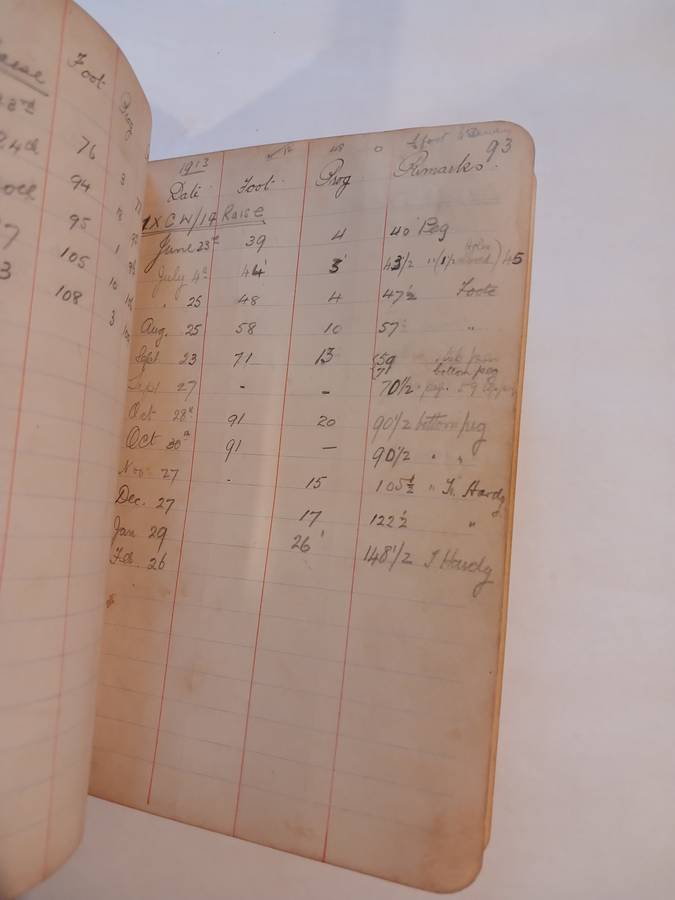 Foot Prog
76
94
95
105
108
93
1913
Date Foot Prog Remarks
1 X C W/19 Raise
June 23rd 39 4 40' Peg
July 4th 44' 3' 43 1/2 45
" 25 48 4 47 1/2 Foote
Aug. 25 58 10 57 "
Sept 23 71 13 59
71 bottom peg
Sept 27 - - 70 1/2 59
Oct 28th 91 20 90 1/2 bottom peg
Oct 30th 91 - 90 1/2 " "
Nov 27 - 15 105 1/2 " Hardy
Dec. 27 17 122 1/2 "
Jan 29 26' 148 1/2 J Hardy
Feb. 26